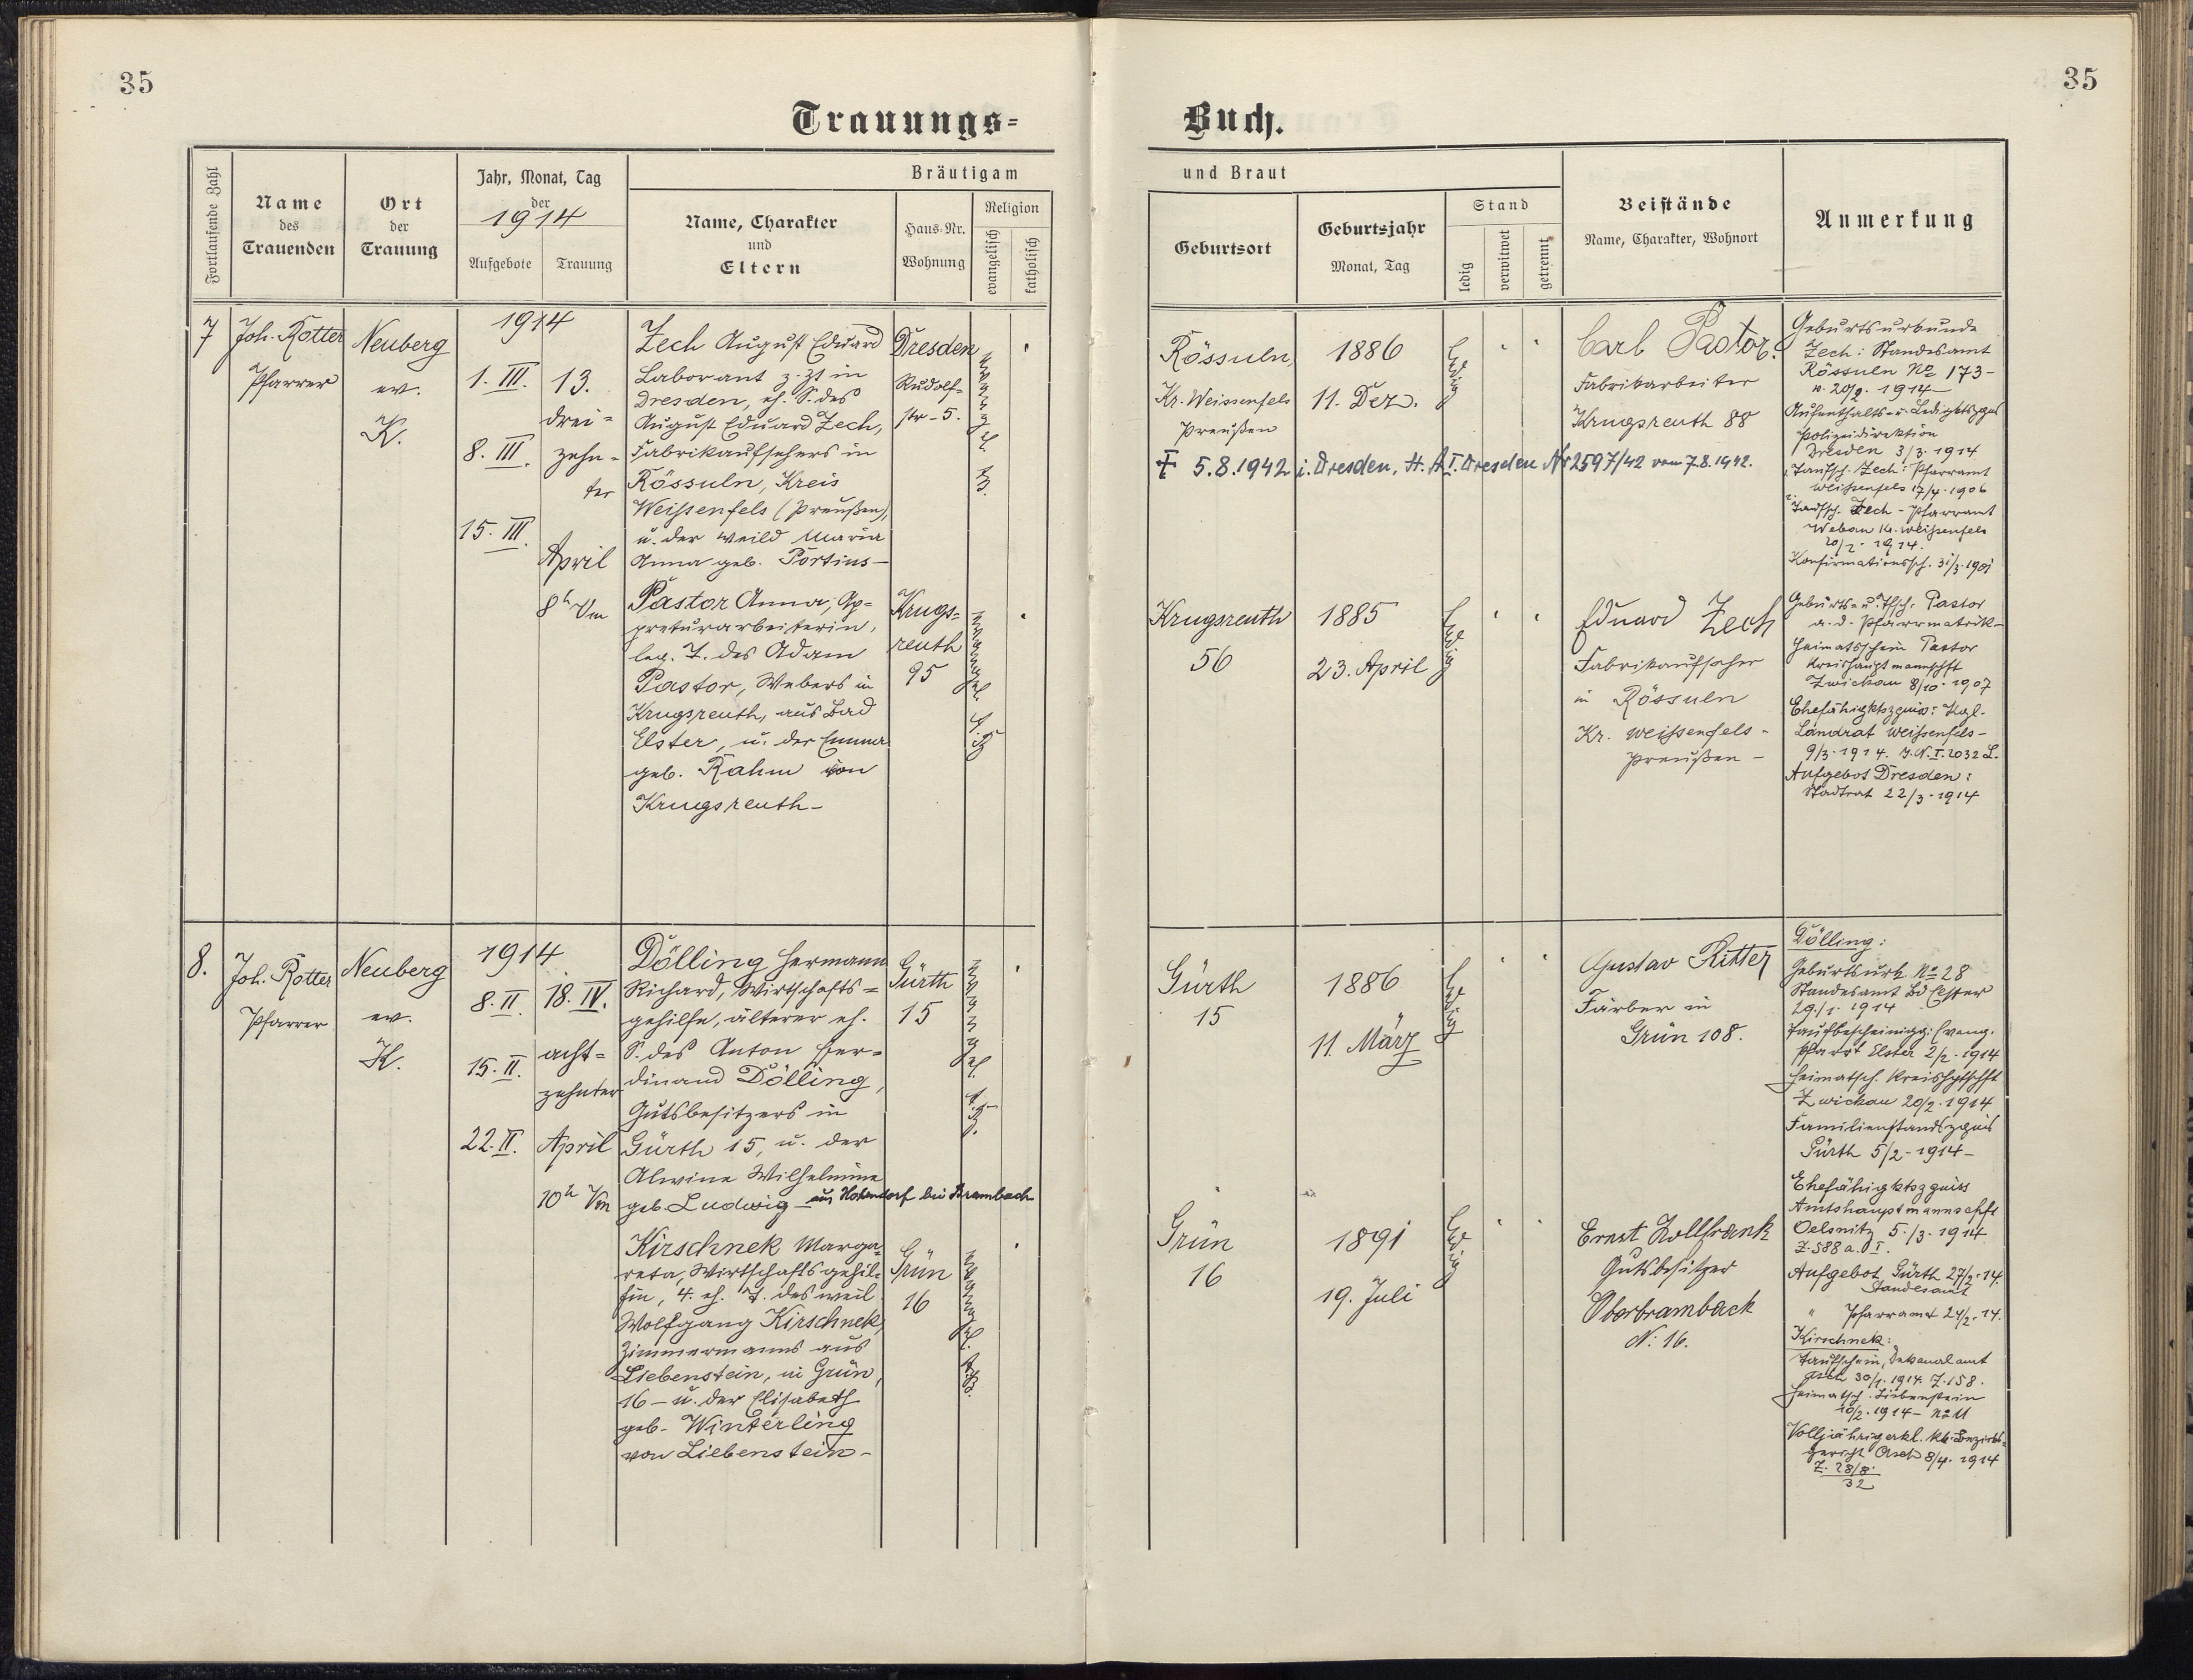 35
35
Trauungs=
Buch.
Fortlaufende Zahl
Name
des
Trauenden
Ort
der
Trauung
Jahr, Monat, Tag
der
1914
Aufgebote
Trauung
Bräutigam
Name, Charakter
und
Eltern
Haus-Nr.
Wohnung
Religion
evangelisch
katholisch
und Braut
Geburtsort
Geburtsjahr
Monat, Tag
Stand
ledig
verwitwet
getrennt
Beistände
Name, Charakter, Wohnort
Anmerkung
7
Joh. Rotter
Pfarrer
Neuberg
ev.
K.
1914
1. III.
8. III.
15. III.
13.
drei=
zehn=
ter
April
8h Vm
Zech August Eduard
Laborant z. Zt in
Dresden, eh. S. des
August Eduard Zech,
Fabrikaufsehers in
Rössuln, Kreis
Weißenfels (Preußen),
u. der weild Maria
Anna geb. Portius–
Dresden
Rudolf=
str–5.
evangel.
Rössuln,
Kr. Weissenfels
Preußen
1886
11. Dez.
ledig
Carl Pastor.
Fabrikarbeiter
Krugsreuth 88
5.8.1942 i. Dresden, St. A I. Dresden Nr 2597/42 vom 7.8.1942.
Geburtsurkunde
Zech: Standesamt
Rössuln No 173–
v. 20/2. 1914–
Aufenthalts- u. Ledigktszgnis
Polizeidirektion
Dresden 3/3. 1914
Taufsch. Zech: Pfarramt
Weißenfels 17/4. 1906
Taufsch. Zech – Pfarramt
Kr. Weißenfels
1914.
Konfirmationssch. 31/3. 1901
Pastor Anna, Ap=
preturarbeiterin,
leg. T. des Adam
Pastor, Webers in
Krugsreuth, aus Bad
Elster, u. der Emma
geb. Rahm von
Krugsreuth–
Krugs=
reuth
95
evangel.
Krugsreuth
56
1885
23. April
ledig
Eduard Zech
Fabrikaufseher
in Rössuln
Kr. Weißenfels–
Preußen–
Geburts- u. Tfsch. Pastor
a. d. Pfarrmatrik–
Heimatsschein Pastor
Kreishauptmannschft
Zwickau 8/10. 1907
Ehefähigktszgniss: Kgl.
Landrat Weißenfels–
9/3. 1914. J.N. I. 2032 L.
Aufgebot Dresden:
Stadtrat 22/3. 1914
8.
Joh. Rotter
Pfarrer
Neuberg
ev.
K.
1914
8. II.
15. II.
22. II.
18. IV.
acht=
zehnter
April
10h Vm
Dölling Hermann
Richard, Wirtschafts=
gehilfe, älterer eh.
S. des Anton Fer=
dinand Dölling,
Gutsbesitzers in
Gürth 15, u. der
Alwine Wilhelmine
geb. Ludwig – aus Hohendorf bei Brambach
Gürth
15
evangel.
Gürth
15
1886
11. März
ledig
Gustav Ritter
Färber in
Grün 108.
Dölling:
Geburtsurk. No 28
Standesamt Bd Elster
29./1. 1914
Taufbescheinigg: Evang.
Pfarrt Elster 2/2. 1914
Heimatsch. Kreishptschft
Zwickau 20/2. 1914
Familienstandszgnis
Gürth 5/2. 1914–
Ehefähigktszgniss
Amtshauptmannschft
Oelsnitz 5./3. 1914
Z. 588 a. I.
Aufgebot Gürth 27/2. 14.
Standesamt
" Pfarramt 24/2. 14.
Kirschnek Marga=
reta, Wirtschaftsgehil=
fin, 4. eh. T. des weil.
Wolfgang Kirschnek,
Zimmermanns aus
Liebenstein, in Grün,
16 – u. der Elisabeth
geb. Winterling
von Liebenstein–
Grün
16
evangel.
A.B.
Grün
16
1891
19. Juli
ledig
Ernst Zollfrank
Gutsbesitzer
Oberbrambach
N: 16.
Kirschnek:
Taufschein, Dekanalamt
Asch 30/1. 1914. Z. 158.
Heimatsch. Liebenstein
10/2. 1914 – No 11
Volljährigerkl. kk. Bezirks=
gericht Asch 8/4. 1914
Z. 28/8.
32